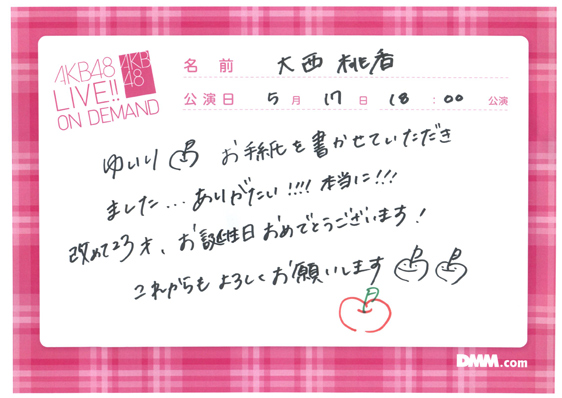 AKB48
LIVE!!
ON DEMAND
AKB
48
名前 大西桃香
公演日 5月17日 18:00 公演
ゆいり お手紙を書かせていただき
ました...ありがたい!!!! 本当に!!!
改めて23才、お誕生日おめでとうございます!
これからもよろしくお願いします
DMM.com